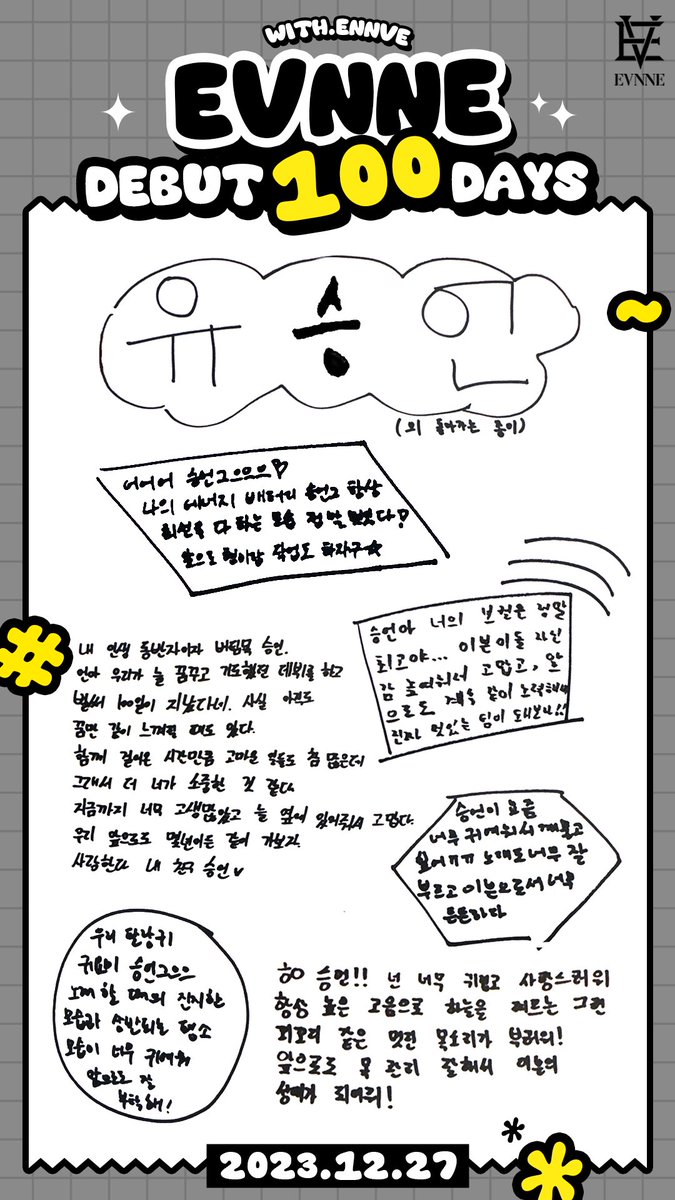 WITH.ENNVE
EVNNE
EVNNE
DEBUT 100 DAYS
유승언
(의 돌아가는 종이)
승언그으으으
나의 에너지 배터리 승언그 항상
최선을 다 하는 모습 정말 멋있다
앞으로 형이랑 작업도 하자구☆
승언아 너의 보컬은 정말
최고야... 이븐이들 자신
감 높여줘서 고맙고, 앞
으로도 계속 같이 노력해서
진짜 멋있는 팀이 돼보자!!
내 인생 동반자이자 버팀목 승언.
언아 우리가 늘 꿈꾸고 기도했던 데뷔를 하고
벌써 100일이 지났다네. 사실 아직도
꿈만 같이 느껴질 때도 있다.
함께 걸어온 시간만큼 고마운 일들도 참 많은데
그래서 더 너가 소중한 것 같다.
지금까지 너무 고생많았고 늘 옆에 있어줘서 고맙다.
우리 앞으로도 몇년이든 같이 가보자.
사랑한다 내 친구 승언♥
승언이 요즘
너무 귀여워서 깨물고
노래도 너무 잘
부르고 이븐으로서 너무
든든하다
우리
귀요미 승언그으으
노래 할 때의 진지한
모습과 상반되는 평소
모습이 너무 귀여워
앞으로도 잘
부탁해!
승언!! 넌 너무 귀엽고 사랑스러워
항상 높은 고음으로 하늘을 찌르는 그런
꾀꼬리 같은 멋진 목소리가 부러워!
앞으로도 목 관리 잘해서 이븐의
성대가 되어줘!
2023.12.27